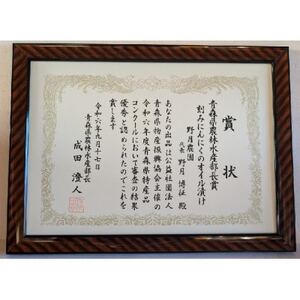 賞状
青森県農林水産部長賞
刻みにんにくのオイル漬け
野月農園
代表 野月 博征 殿
あなたの出品は公益社団法人
青森県物産振興協会主催の
令和六年度青森県特産品
コンクールにおいて審査の結果
優秀と認められたのでこれを
賞します
令和六年九月十七日
青森県農林水産部長
成田 澄人